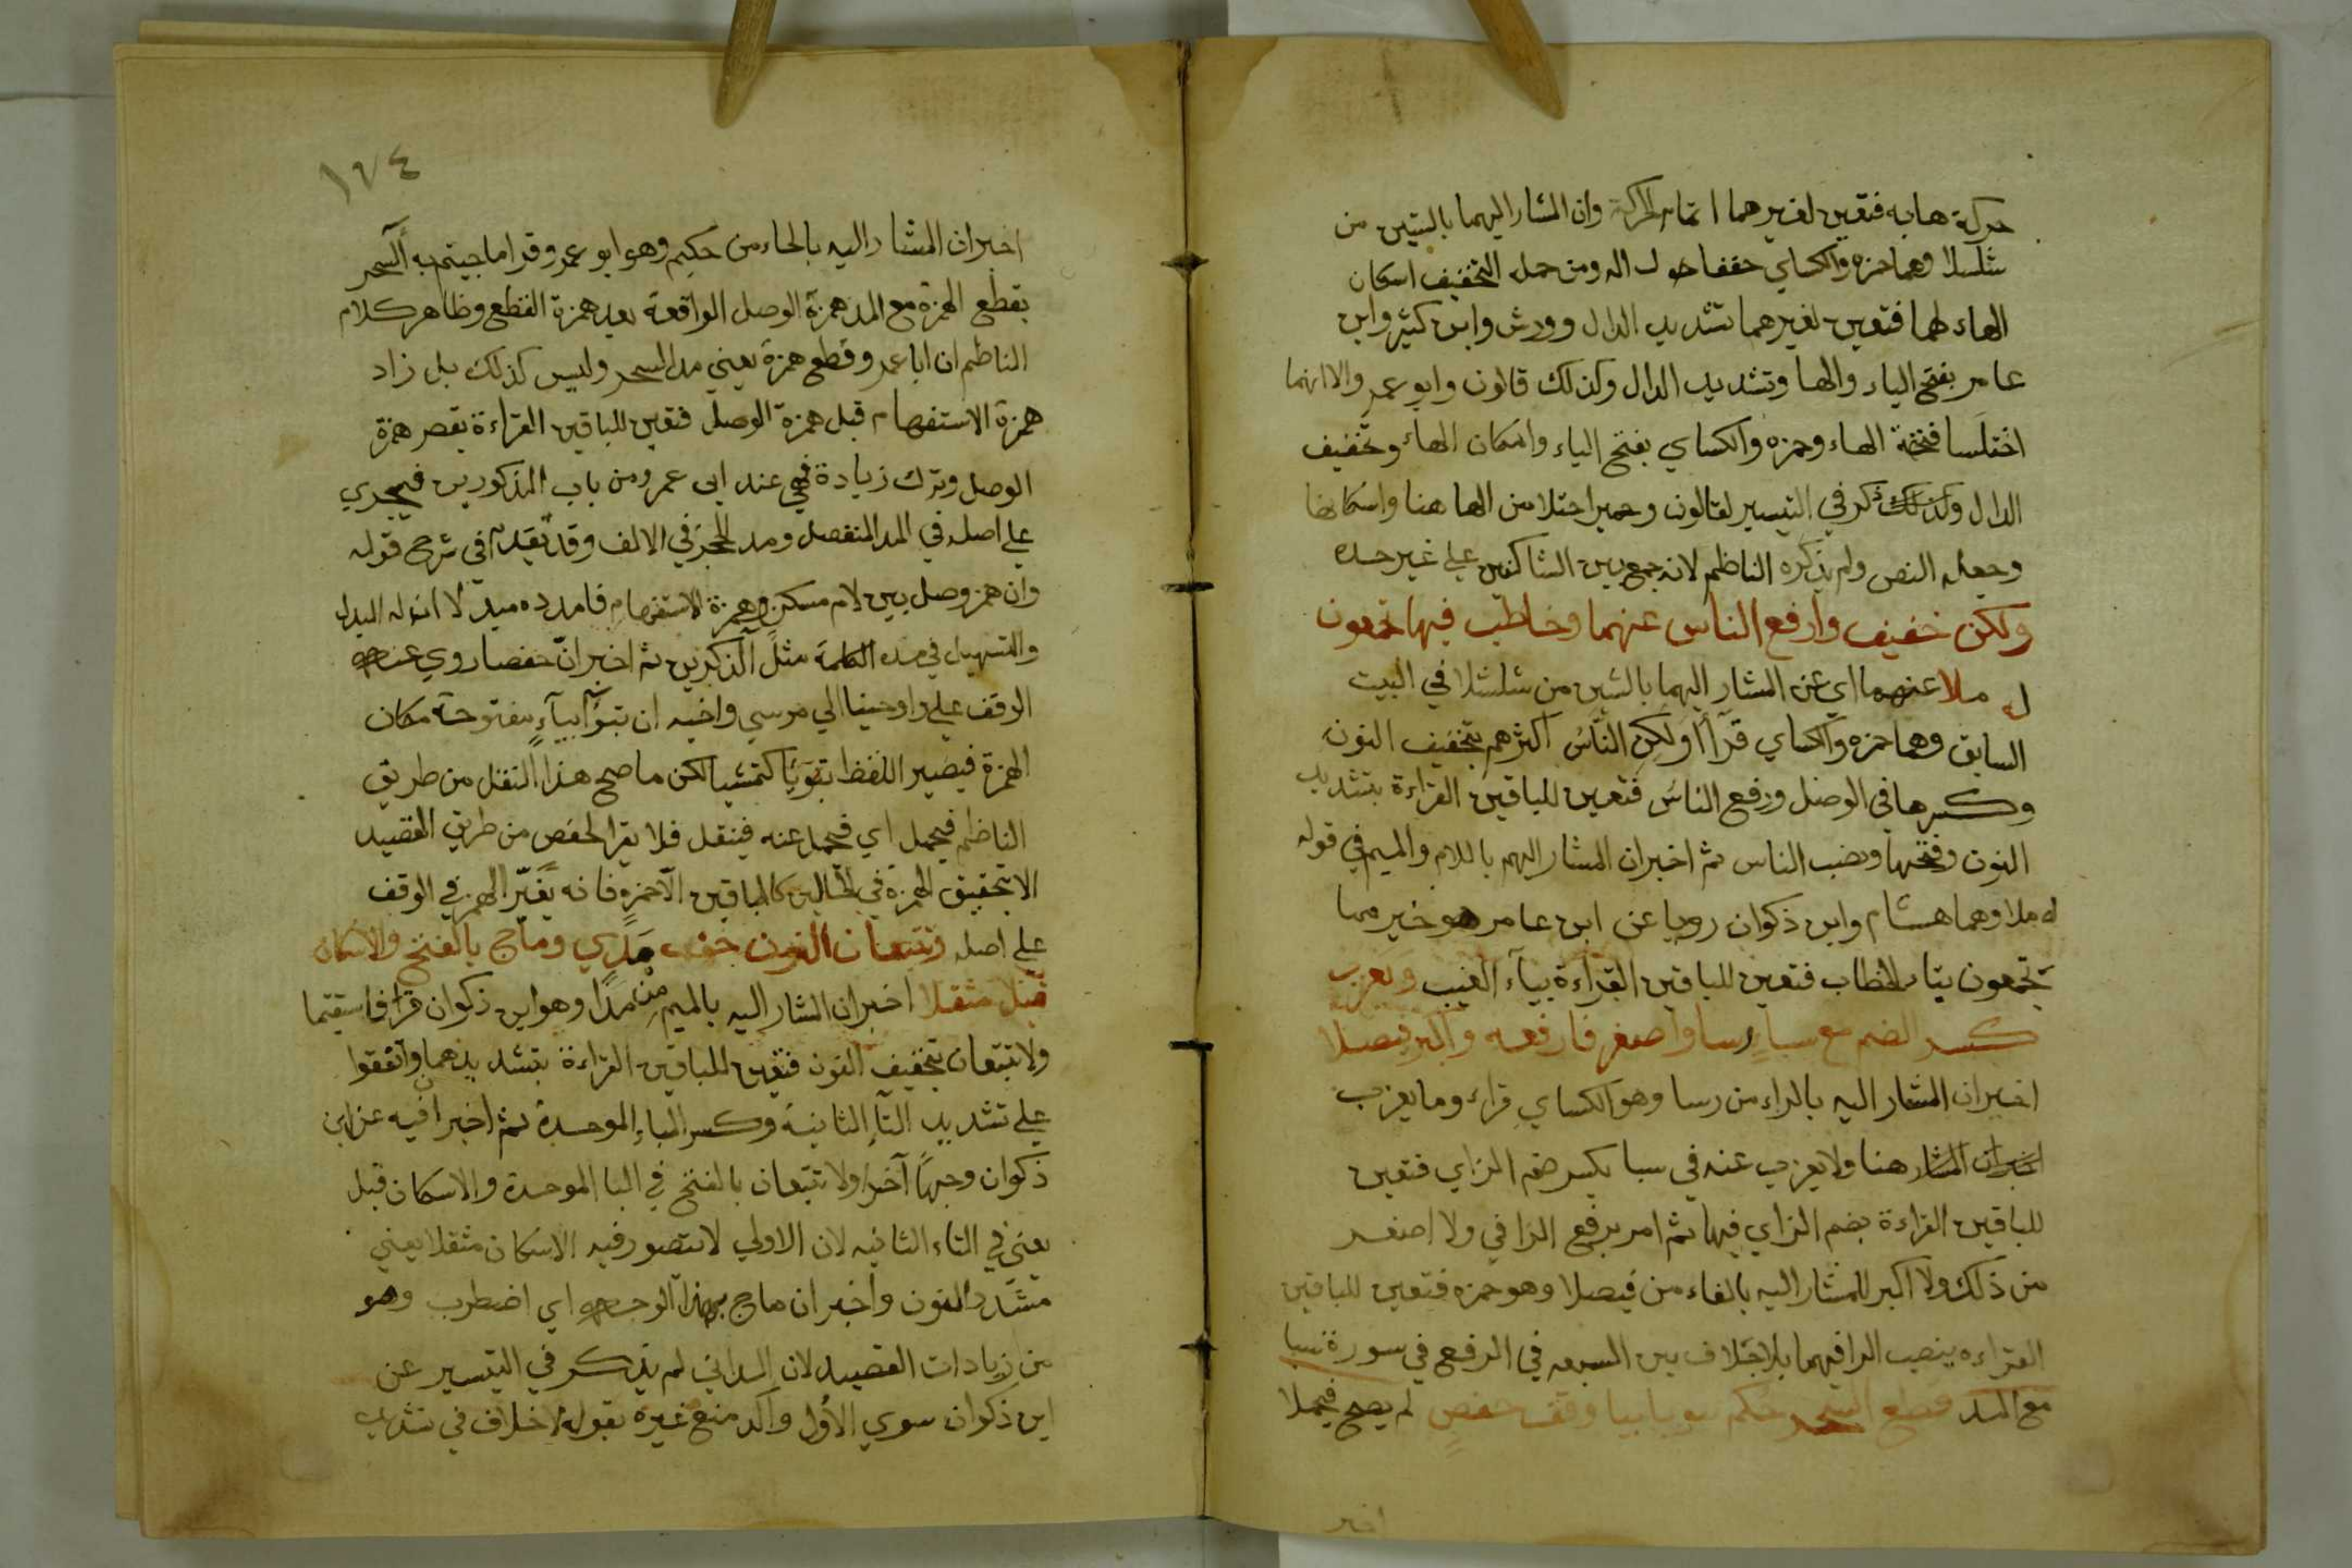 حركة هايه فتعين لغيرهما اتمام الحركة وان المشار اليهما بالشين من
شلشلا وهما حمزه والكساي خففا دال ومن جملة التخفيف اسكان
الهاء لهما فتعين لغيرهما تشديد الدال وورش وابن كثير وابن
عامر بفتح الياء والها وتشديد الدال وكذلك قالون وابو عمرو الا انهما
اختلسا فتحة الهاء وحمزه والكساي بفتح الياء واسكان الهاء وتخفيف
الدال وكذلك ذكر في التيسير لقالون اختلا من الها هنا واسكانها
وجعله النص ولم يذكره الناظم لانه جمع بين الساكنين علي غير حده
ولكن خفيف وارفع الناس عنهما وخاطب فيها تجمعون
له ملا عنهما اي عن المشار اليهما بالشين من شلشلا في البيت
السابق وهما حمزه والكساي قرأا ولكن الناس اكثرهم بتخفيف النون
وكسرها في الوصل ورفع الناس فتعين للباقين القراءة بتشديد
النون وفتحها ونصب الناس ثم اخبر ان المشار اليهم باللام والميم في قوله
له ملا وهما هشام وابن ذكوان رويا عن ابن عامر هو خير مما
تجمعون بتاء الخطاب فتعين للباقين القراءة بياء الغيب ويعزب
كسر الضم مع سبا رسا واصغر فارفعه واكبر فيصلا
اخبر ان المشار اليه بالراء من رسا وهو الكساي قراء وما يعزب
اخبر ان المشار هنا ولا يعزب عنه في سبا بكسر ضم الزاي فتعين
للباقين القراءة بضم الزاي فيها ثم امر برفع الرا في ولا اصغر
من ذلك ولا اكبر للمشار اليه بالفاء من فيصلا وهو حمزه فتعين للباقين
القراءه بنصب الرا فيهما بلا خلاف بين السبعه في الرفع في سورة سبا
مع المد قطع السحر حكم تبويا بيا وقف حفص لم يصح فيحملا
اخبر
١٧٤
اخبر ان المشار اليه بالحاء من حكيم وهو ابو عمرو قرا ما جيتم به آلسحر
بقطع الهمزة مع المد همزة الوصل الواقعة بعد همزة القطع وظاهر كلام
الناظم ان ابا عمرو قطع همزة يعني مد السحر وليس كذلك بل زاد
همزة الاستفهام قبل همزة الوصل فتعين للباقين القراءة بقصر همزة
الوصل وترك زيادة فهي عند ابي عمرو من باب المذكورين فيجري
علي اصله في المد المنفصل ومد الحجز في الالف وقد تقدم في شرح قوله
وان همز وصل بين لام مسكن وهمزة الاستفهام فامدده مبدلا ان له البدل
والتسهيل في هذه الكلمة مثل آلذكرين ثم اخبر ان حفصا روي عنه
الوقف علي واوحينا الي موسي واخيه ان تبوأ بياءٍ مفتوحة مكان
الهمزة فيصير اللفظ تبويا كتمشيا لكن ما صح هذا النقل من طريق
الناظم فيحمل اي فيحمل عنه فينقل فلا يقرا لحفص من طريق القصيد
الا بتحقيق الهمزة في الحالين كالباقين الا حمزه فانه يغيّر الهمز في الوقف
علي اصله وتتبعان النون خف مدي وماج بالفتح والاسكان
قبل مثقلا اخبر ان المشار اليه بالميم من مدا وهو ابن ذكوان قرا فاستقيما
ولا تتبعان بتخفيف النون فتعين للباقين القراءة بتشديدهما واتفقوا
علي تشديد التا الثانية وكسر الباء الموحدة ثم اخبر ان فيه عن ابن
ذكوان وجهًا آخر ولا تتبعان بالفتح في البا الموحدة والاسكان قبل
يعني في التاء الثانيه لان الاولي لا يتصور فيه الاسكان مثقلا يعني
مشدد النون واخبر ان ماج بهذا الوجه اي اضطرب وهو
من زيادات القصيد لان الداني لم يذكر في التيسير عن
ابن ذكوان سوي الاول واكد منع غيره بقوله لا خلاف في تشديد